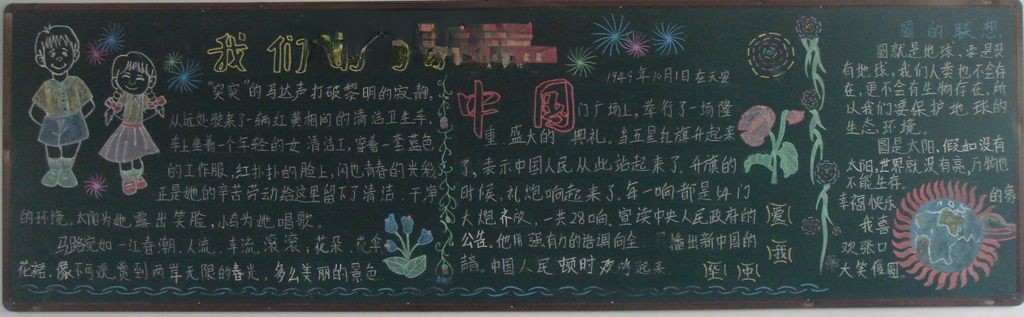 我们
"突突"的马达声打破黎明的寂静,
从远处驶来了一辆红黄相间的清洁卫生车,
车上坐着一个年轻的女清洁工,穿着一套蓝色
的工作服,红扑扑的脸上,闪出青春的光彩
正是她的辛苦劳动给这里留下了清洁、干净
的环境,太阳为她露出笑脸,小鸟为她唱歌。
马路宛如一江春潮,人流、车流滚滚,花朵、花伞
花裙,像不观赏到两岸无限的春光,多么美丽的景色
中国
1949年10月1日在天安
门广场上,举行了一场隆
重、盛大的典礼。当五星红旗升起来
了,表示中国人民从此站起来了。升旗的
时候,礼炮响起来了,每一响都是54门
大炮齐放,一共28响。宣读中央人民政府的
公告。他用强有力的语调向全 播出新中国的
中国人民顿时欢 起来
爱
我
圆的联想
圆就是地球,要是没
有地球,我们人类也不会存
在,更不会有生物存在,所
以我们要保护地球的
生态环境。
圆是太阳,假如没有
太阳,世界就没有亮,万物也
不能生存。
幸福快乐的象
我喜
欢张口
大笑像圆